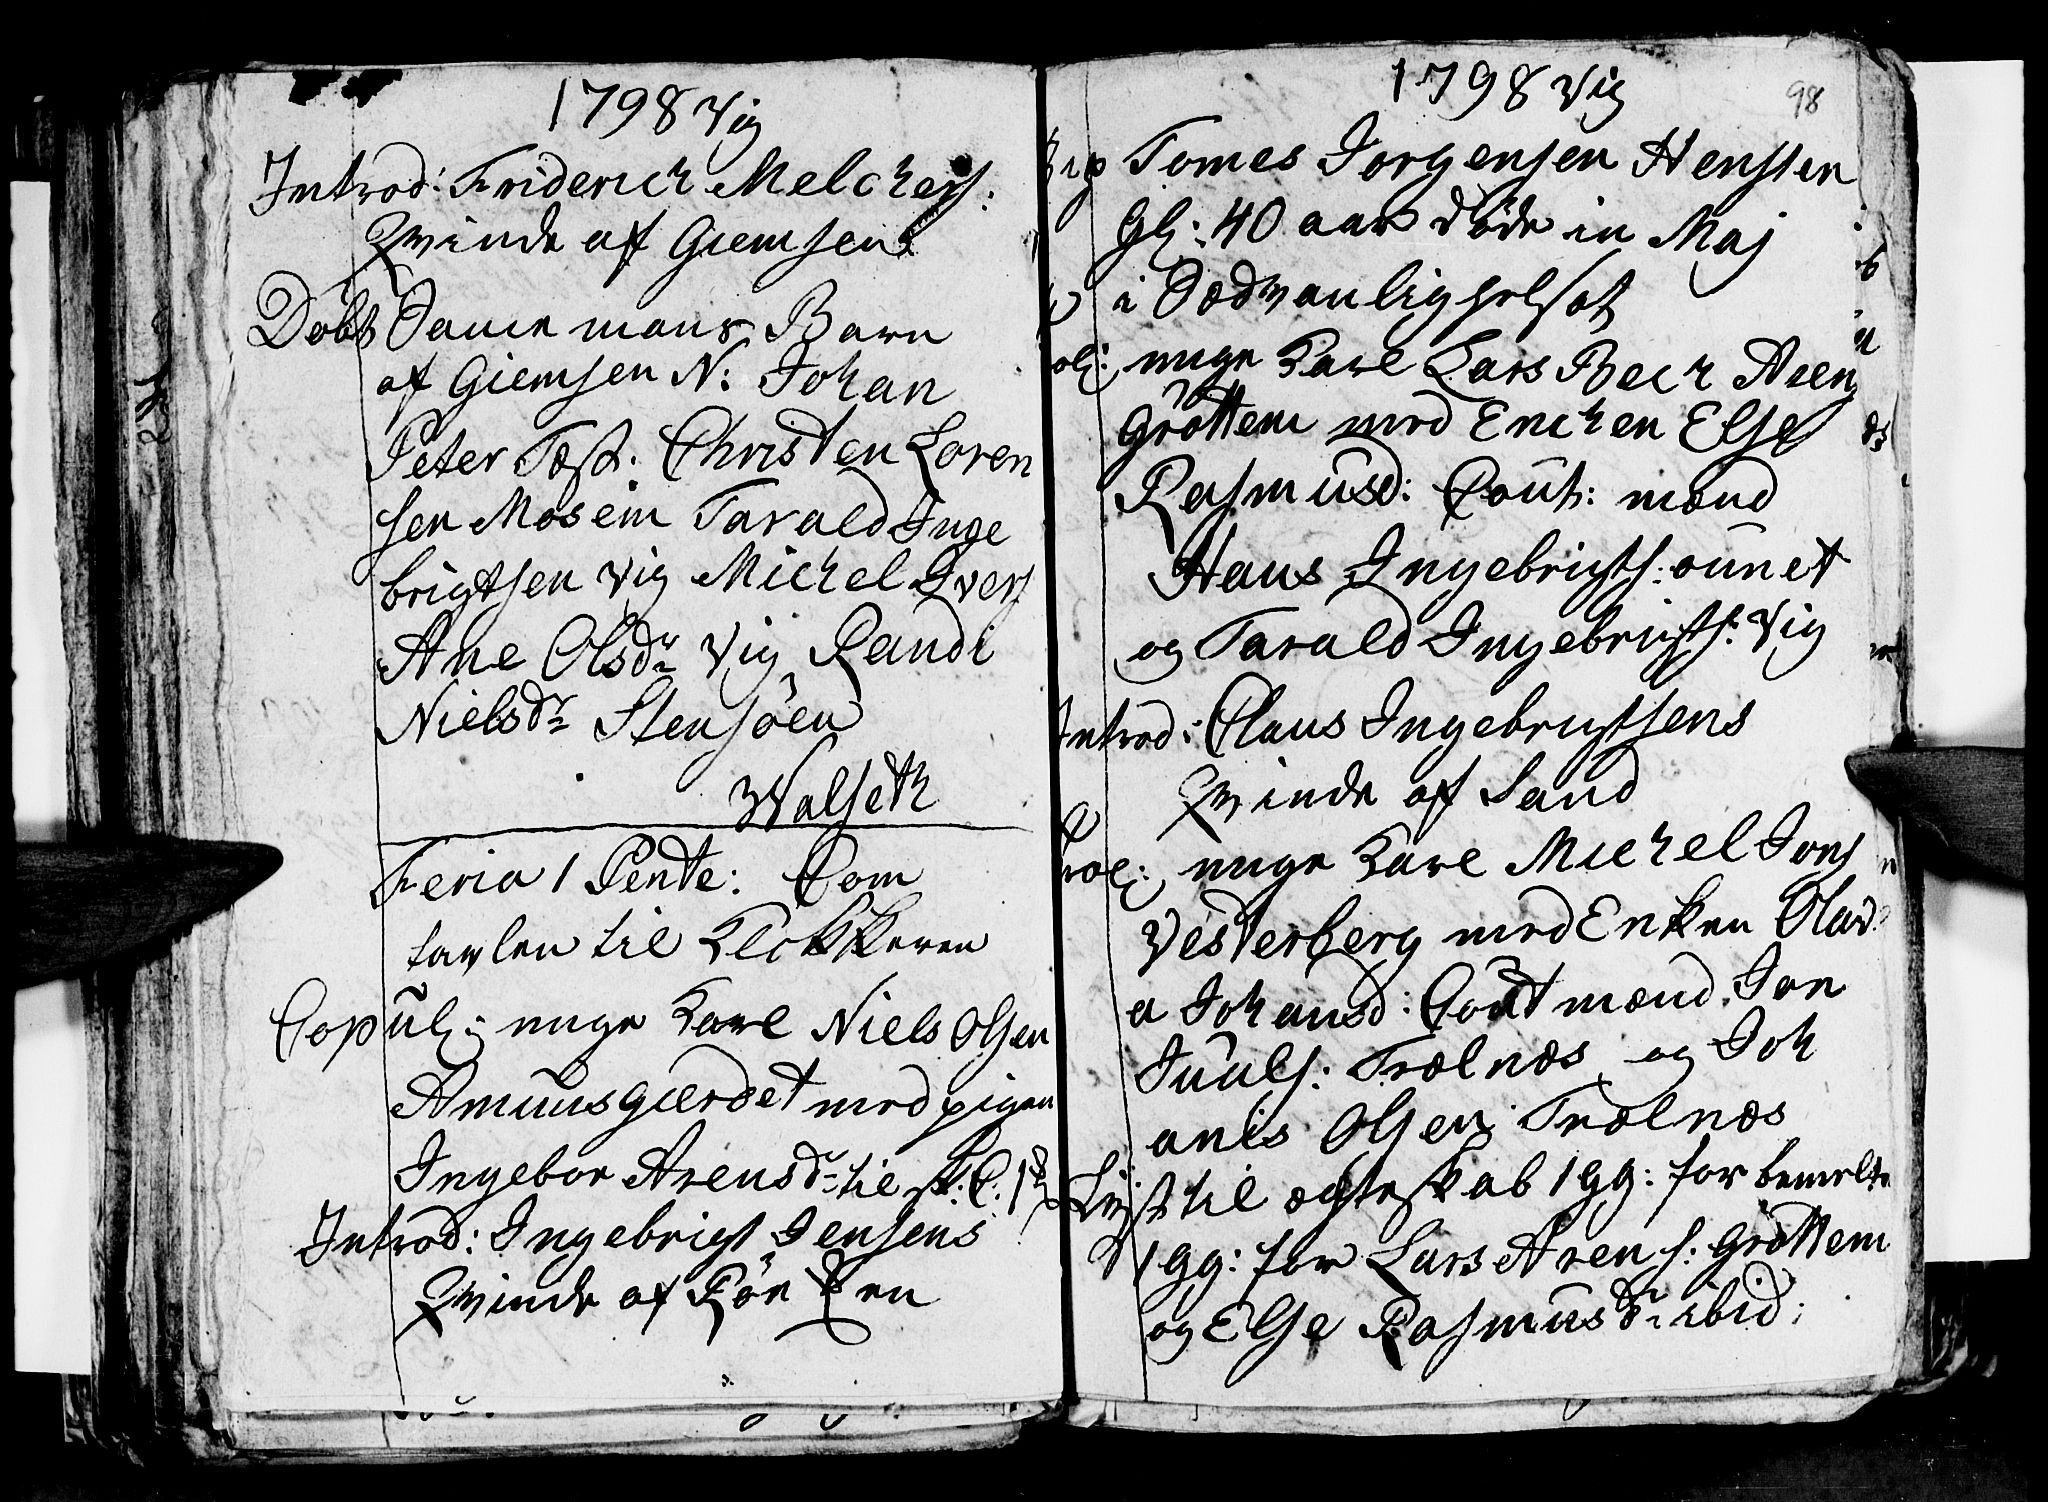 1798 Vig
Introd: Friderich Melchers:
Qvinde af Giemsen
Døbt Samme mans Barn
af Giemsen N: Johan
Peter Test: Christen Loren
sen Mosem Tarald Inge
brigtsen Vig Michel Ivers
Ane Olsdr Vig Randi
Nielsdr Stensøen
Walseth
Feria 1 Pente: Com
tavlen til Klokkeren
Copul: unge Karl Niels Olsen
Amunsgierdet med pigen
Ingebor Arensdr til
Introd: Ingebrigt Jensens
Qvinde af Rør
1798 Vig
98
Tomes Jorgensen Hensten
Gl: 40 aar døde in Maj
i Sædvanlighelsot
unge Karl Lars Bech Aren
Grøttem med Enchen Else
Rasmusd: Caut: mænd
Hans Ingebrigts: aunet
og Tarald Ingebrigts: Vig
Introd: Claus Ingebrigtsens
Qvinde af Sand
unge Karl Michel Jons
Vesterberg med Enken Olav
a Johansd: Caut mænd Jon
Juuls: Trælnæs og Joh
anis Olsen Trælnæs
Lyst til ægteskab 1 gg: for bemelte
1 gg: for Lars Aren s: Grøttem
og Else Rasmusdr ibid: